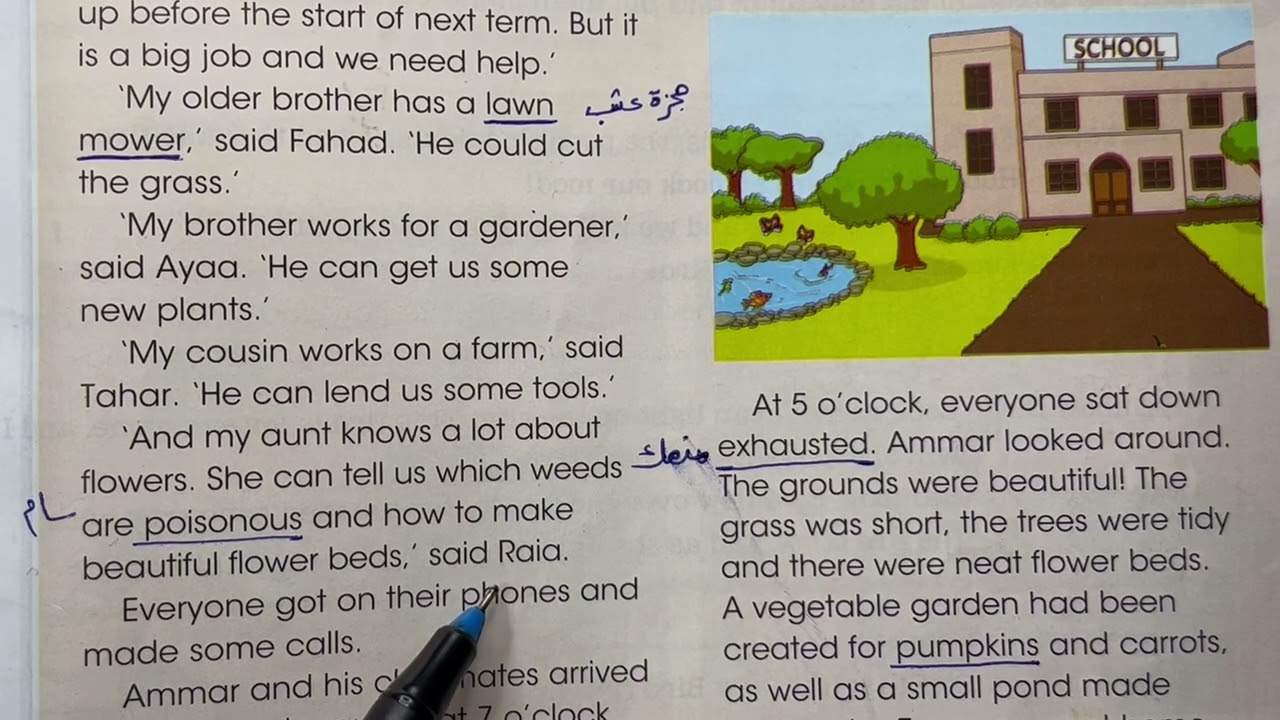 up before the start of next term. But it
is a big job and we need help.’
‘My older brother has a lawn
مجزة عشب
mower,’ said Fahad. ‘He could cut
the grass.’
‘My brother works for a gardener,’
said Ayaa. ‘He can get us some
new plants.’
‘My cousin works on a farm,’ said
Tahar. ‘He can lend us some tools.’
‘And my aunt knows a lot about
flowers. She can tell us which weeds
سام
are poisonous and how to make
beautiful flower beds,’ said Raia.
Everyone got on their phones and
made some calls.
Ammar and his arrived
at 7 o’clock
SCHOOL
At 5 o’clock, everyone sat down
منهك
exhausted. Ammar looked around.
The grounds were beautiful! The
grass was short, the trees were tidy
and there were neat flower beds.
A vegetable garden had been
created for pumpkins and carrots,
as well as a small pond made